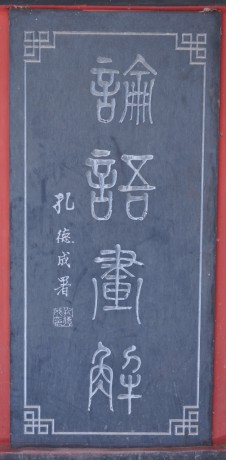 論語畫解
孔德成署